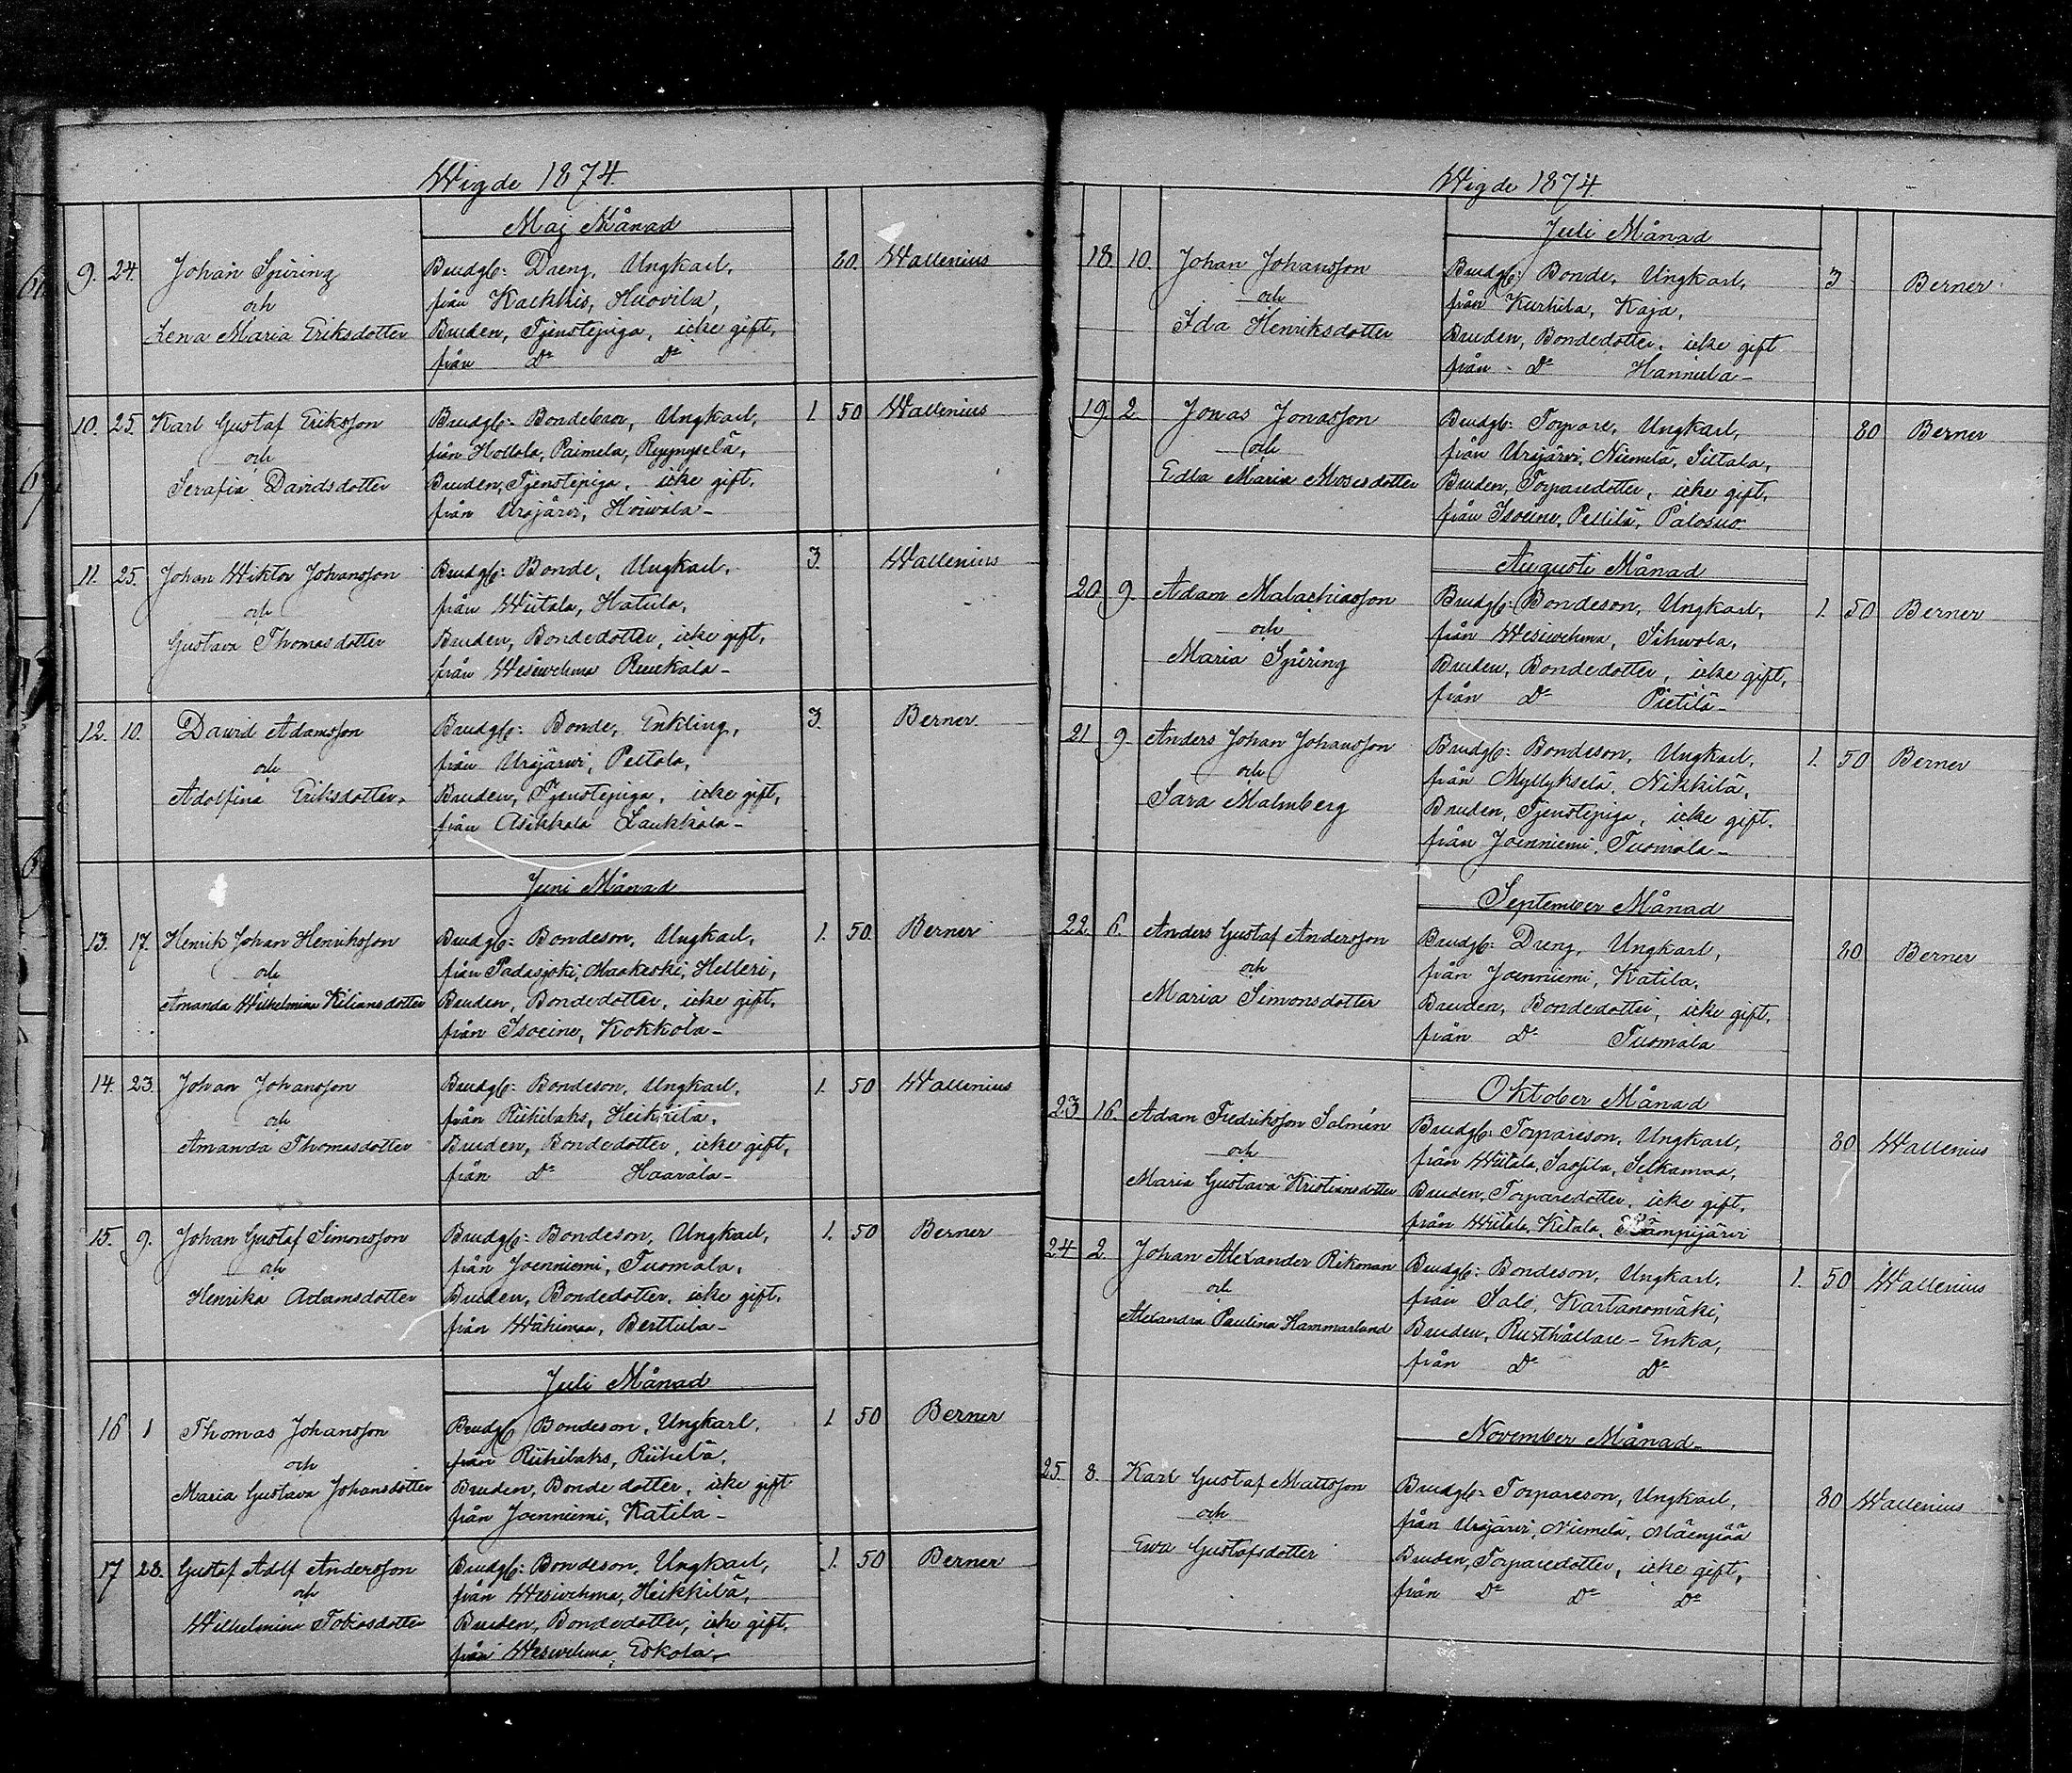 Wigde 1874.
Maj Månad
9. 24. Johan Spiring Brudg: Dreng, Ungkarl, 80. Wallenius
och från Kalkkis, Huovila,
Lena Maria Eriksdotter Bruden, Tjenstepiga, icke gift,
från Do Do
10. 25. Karl Gustaf Eriksson Brudg: Bondeson, Ungkarl, 1. 50 Wallenius
och från Hollola, Paimela,
Serafia Davidsdotter Bruden, Tjenstepiga, icke gift,
från Urajärvi, Hoivala -
11. 25. Johan Wiktor Johansson Brudg: Bonde, Ungkarl, 3. Wallenius
och från Wiitala, Hatula,
Gustava Thomasdotter Bruden, Bondedotter, icke gift,
från Wesiwehma Ruukala -
12. 10. David Adamsson Brudg: Bonde, Enkling, 3. Berner
och från Urajärwi, Peltola,
Adolfina Eriksdotter. Bruden, Tjenstepiga, icke gift,
från Asikkala Laukkala -
Juni Månad
13. 17. Henrik Johan Henriksson Brudg: Bondeson, Ungkarl, 1. 50. Berner
och från Padasjoki, Maakeski, Helleri,
Amanda Wilhelmina Kiliansdotter Bruden, Bondedotter, icke gift,
från Isoeine, Kokkola -
14. 23. Johan Johansson Brudg: Bondeson, Ungkarl, 1. 50 Wallenius
och från Riihilaks, Heikkilä,
Amanda Thomasdotter Bruden, Bondedotter, icke gift,
från Do Haavala -
15. 9. Johan Gustaf Simonsson Brudg: Bondeson, Ungkarl, 1. 50 Berner
och från Joenniemi, Tuomala,
Henrika Adamsdotter Bruden, Bondedotter, icke gift,
från Wähimaa, Berttula -
Juli Månad
16 1 Thomas Johansson Brudg: Bondeson, Ungkarl, 1. 50 Berner
och från Riihilaks, Riihelä,
Maria Gustava Johansdotter Bruden, Bonde dotter, icke gift
från Joenniemi, Katila -
17 28. Gustaf Adlf Andersson Brudg: Bondeson, Ungkarl, 1. 50 Berner
och från Wesiwehma, Heikkilä,
Wilhelmina Tobiasdotter Bruden, Bondedotter, icke gift,
från Wesiwehma, Eskola -
Wigde 1874.
Juli Månad
18. 10. Johan Johansson Brudg: Bonde, Ungkarl, 3 Berner
och från Kurhila, Kaja,
Ida Henriksdotter Bruden, Bondedotter, icke gift
från Do Hannula -
19. 2. Jonas Jonasson Brudg: Torpare, Ungkarl, 80 Berner
och från Urajärvi, Niemelä, Siltala,
Edla Maria Mosesdotter Bruden, Torparedotter, icke gift,
från Isoeine, Pellilä, Palosuo
Augusti Månad
20 9. Adam Malachiasson Brudg: Bondeson, Ungkarl, 1. 50 Berner
och från Wesiwehma, Sihwola,
Maria Spiring Bruden, Bondedotter, icke gift,
från Do Pietilä -
21 9. Anders Johan Johansson Brudg: Bondeson, Ungkarl, 1. 50 Berner
och från Myllykselä, Nikkilä,
Sara Malmberg Bruden, Tjenstepiga, icke gift,
från Joenniemi, Tuomala -
September Månad
22. 6. Anders Gustaf Andersson Brudg: Dreng, Ungkarl, 80 Berner
och från Joenniemi, Katila,
Maria Simonsdotter Bruden, Bondedotter, icke gift,
från Do Tuomala
Oktober Månad
23 16. Adam Fredriksson Salmén Brudg: Torpareson, Ungkarl, 80 Wallenius
och från Wiitala, Sassila, Selkämaa,
Maria Gustava Kristiansdotter Bruden, Torparedotter, icke gift,
från Wiitala, Kitala, Rämpijärvi
24 2. Johan Alexander Rikman Brudg: Bondeson, Ungkarl, 1. 50 Wallenius
och från Salo, Kartanomäki,
Alexandra Paulina Hammarlund Bruden, Rusthållare-Enka,
från Do Do
November Månad
25. 8. Karl Gustaf Mattsson Brudg: Torpareson, Ungkarl, 80 Wallenius
och från Urajärvi, Niemelä, Mäenpää
Ewa Gustafsdotter Bruden, Torparedotter, icke gift,
från Do Do Do